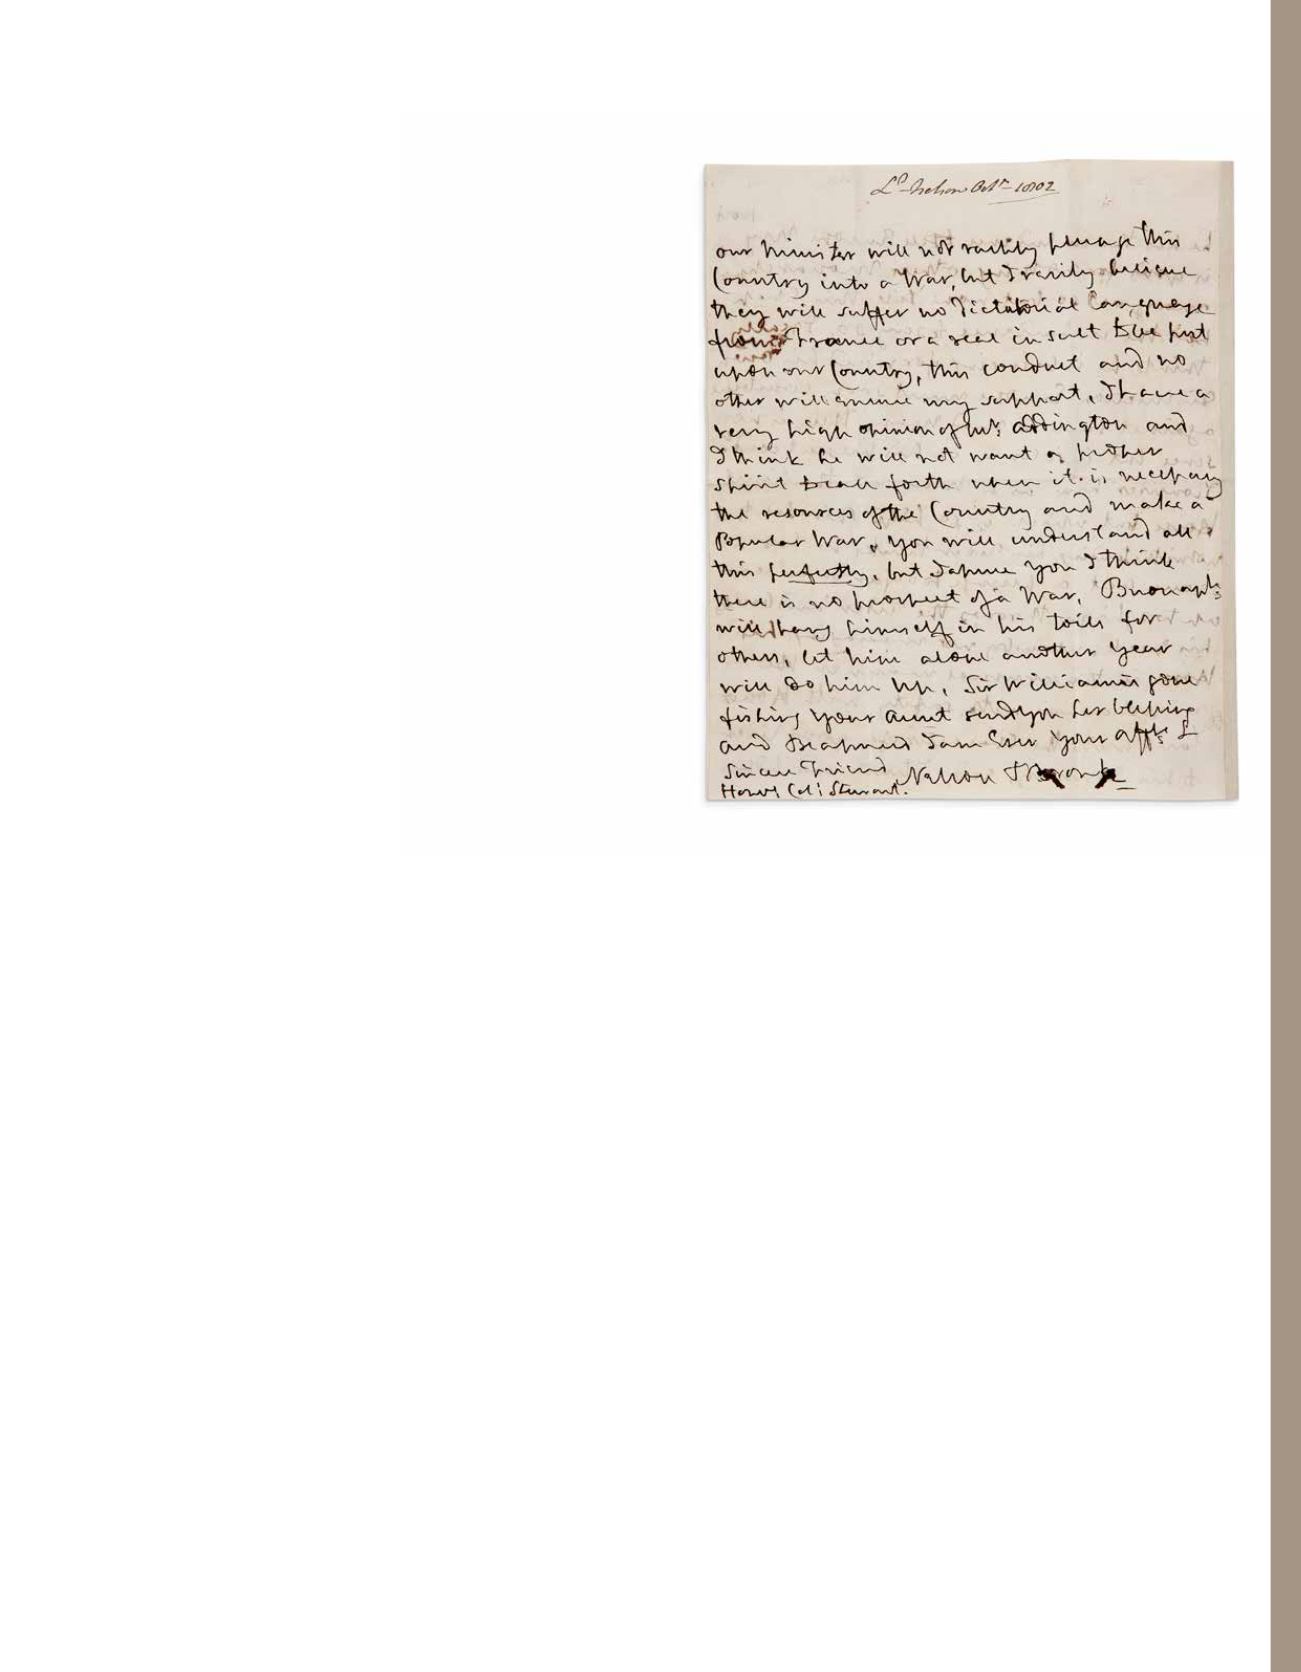 Ld. Nelson Octr. 1802
our Minister will not rashly plunge this
Country into a War, but I verily believe
they will suffer no Dictatorial Language
from France or a real insult to be put
upon our Country, this conduct and no
other will ensure my support, I have a
very high opinion of Mr. Addington and
I think he will not want a proper
spirit to call forth when it is necessary
the resources of the Country and make a
Popular War, you will understand all
this perfectly, but I assure you I think
there is no prospect of a War, Buonaple:
will hang himself in his toils for
others, let him alone another Year
will do him up, Sir William is gone
fishing your aunt sends you her blessing
and Be assured I am Ever Your affte. &
Sincere Friend Nelson & Bronte
Honble. Col: Stewart.